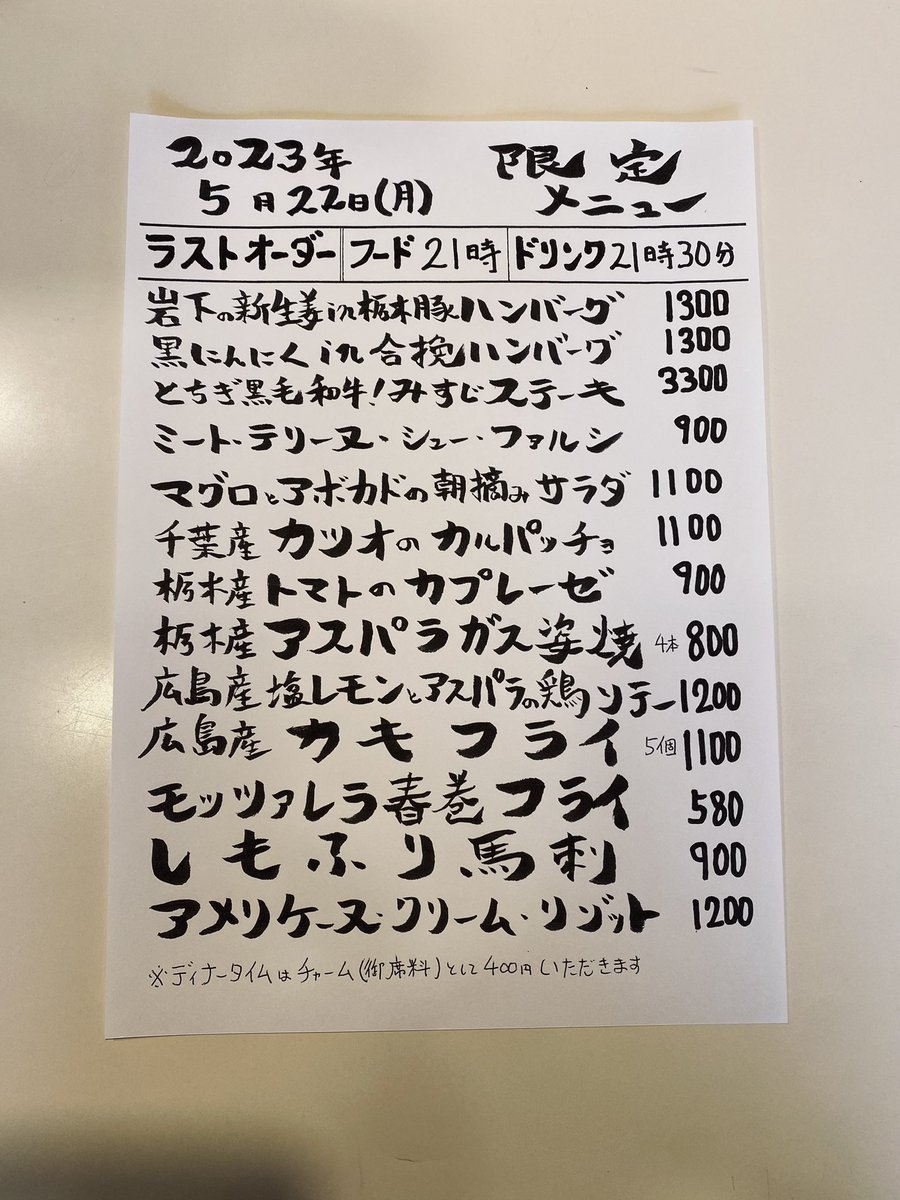 2023年 限定
5月22日(月) メニュー
ラストオーダー フード21時 ドリンク21時30分
岩下の新生姜in栃木豚ハンバーグ 1300
黒にんにくin合挽ハンバーグ 1300
とちぎ黒毛和牛!みすじステーキ 3300
ミート・テリーヌ・シュー・ファルシ 900
マグロとアボカドの朝摘みサラダ 1100
千葉産カツオのカルパッチョ 1100
栃木産トマトのカプレーゼ 900
栃木産アスパラガス姿焼 4本 800
広島産塩レモンとアスパラの鶏ソテー 1200
広島産カキフライ 5個 1100
モッツァレラ春巻フライ 580
しもふり馬刺 900
アメリケーヌ・クリーム・リゾット 1200
※ディナータイムはチャーム(御席料)として400円いただきます